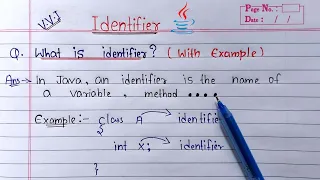 VVI
Identifier
Page No.
Date : / /
Q. What is identifier? (With Example)
Ans → In Java, an identifier is the name of
a variable, method ....
Example :- class A → identifier
{
int x; → identifier
}